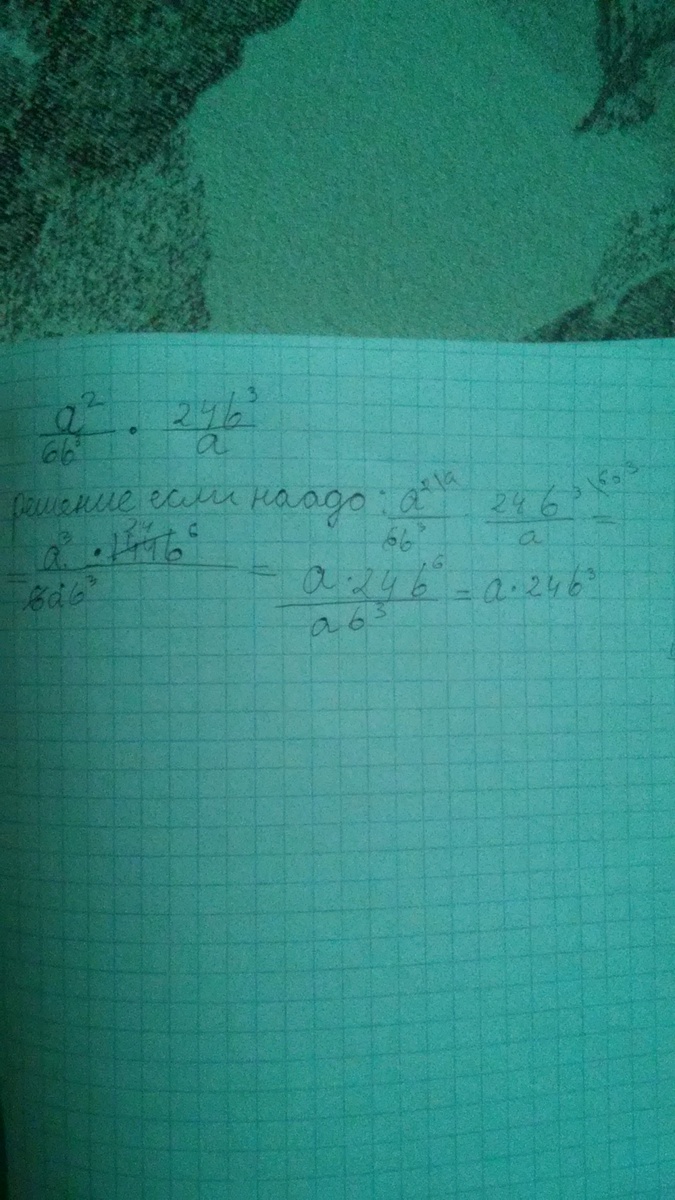 a² / 6b³ · 24b³ / a
решение если наадо: a²\a / 6b³ 24b³\6b³ / a =
= a³ · 144b⁶ 24 / 6ab³ = a·24b⁶ / ab³ = a·24b³